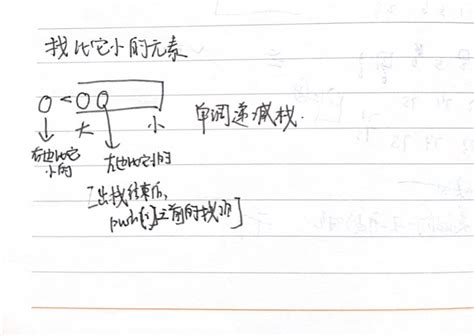 找比它小的元素
大 小 单调递减栈.
右边比它 左边比它小的
小的
[出栈结束后,
push(i)之前的栈顶]